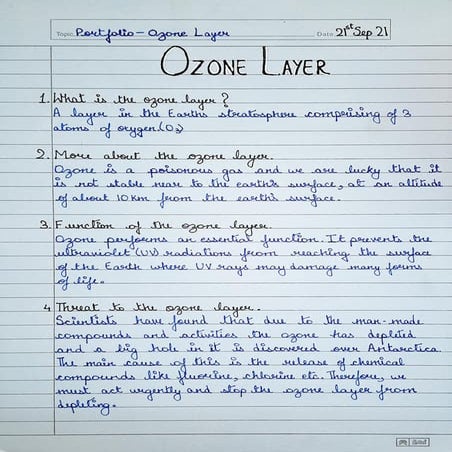 Topic Portfolio - Ozone Layer Date 21st Sep 21
OZONE LAYER
1. What is the ozone layer?
A layer in the Earths stratosphere comprising of 3
atoms of oxygen (O3)
2. More about the ozone layer.
Ozone is a poisonous gas and we are lucky that it
is not stable near to the earth's surface, at an altitude
of about 10 km from the earth's surface.
3. Function of the ozone layer.
Ozone performs an essential function. It prevents the
ultraviolet (UV) radiations from reaching the surface
of the Earth where UV rays may damage many forms
of life.
4 Threat to the ozone layer.
Scientists have found that due to the man-made
compounds and activities the ozone has depleted
and a big hole in it is discovered over Antarctica.
The main cause of this is the release of chemical
compounds like fluorine, chlorine etc. Therefore, we
must act urgently and stop the ozone layer from
depleting.